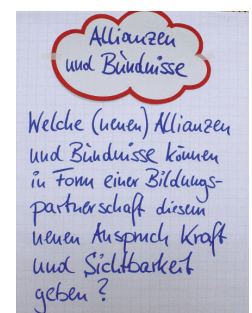 Allianzen
und Bündnisse
Welche (neuen) Allianzen
und Bündnisse können
in Form einer Bildungs-
partnerschaft diesem
neuen Anspruch Kraft
und Sichtbarkeit
geben?